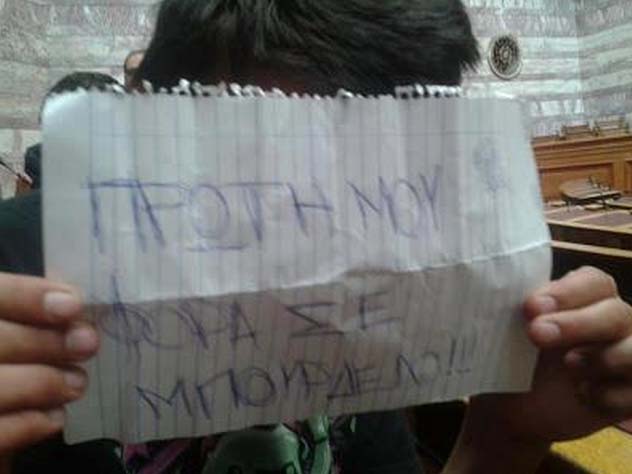 ΠΡΩΤΗ ΜΟΥ
ΦΟΡΑ ΣΕ
ΜΠΟΥΡΔΕΛΟ!!!